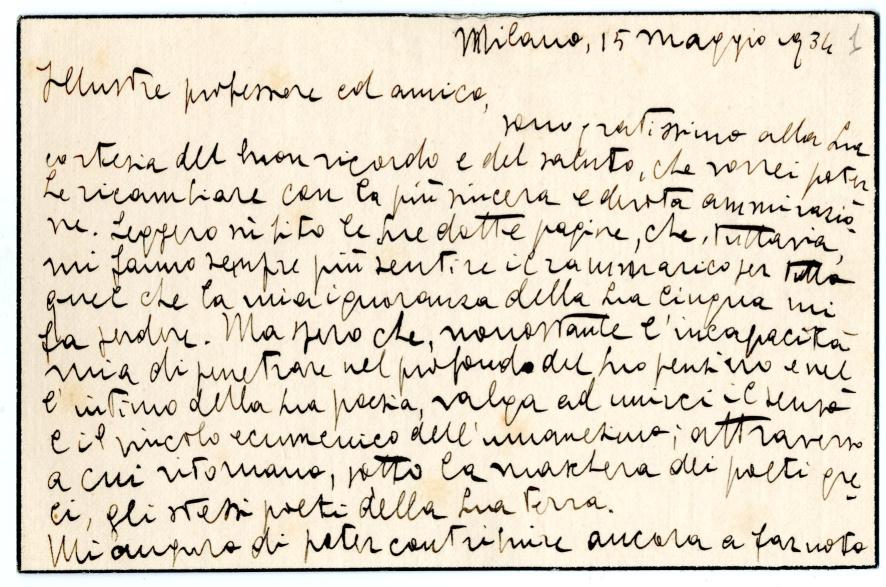 Milano, 15 maggio 1934 1
Illustre professore ed amico,
sono gratissimo alla Sua
cortesia del buon ricordo e del saluto, che vorrei poter
Le ricambiare con la più sincera e devota ammirazio
ne. Leggerò sùbito le Sue dotte pagine, che, tuttavia,
mi fanno sempre più sentire il rammarico per tutto
quel che la mia ignoranza della Sua lingua mi
fa perdere. Ma spero che, nonostante l'incapacità
mia di penetrare nel profondo del Suo pensiero e nel
l'intimo della Sua poesia, valga ad unirci il senso
e il vincolo ecumenico dell'umanesimo; attraverso
a cui ritornano, sotto la maschera dei poeti gre-
ci, gli stessi poeti della Sua terra.
Mi auguro di poter contribuire ancora a far noto